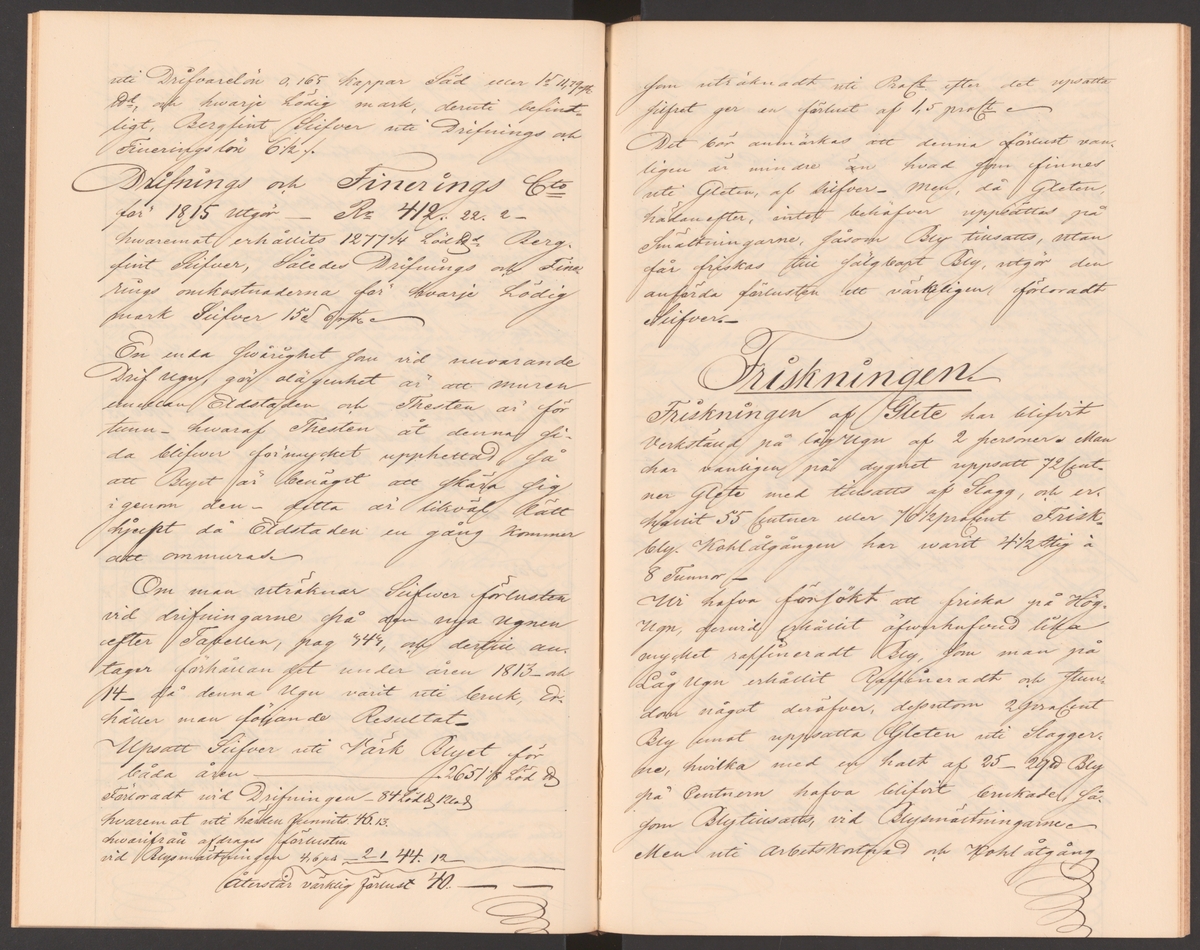 uti Drifvarelön 0,165 Kappar Säd eller
och hwarje Lödig mark, deruti befint-
ligt, Bergfint Silfver uti Drifnings och
Fineringslön 6½ s.
Drifnings och Finerings Cto
för 1815 utgör — Rd 412. 22. 2 –
hwaremot erhållits 1277 ¼ Löd Berg-
fint Silfver, Således Drifnings och Fine-
rings omkostnaderna för hwarje Lödig
mark Silfver 15
En enda swårighet som vid nuvarande
Drif Ugn, gör olägenhet är att muren
emellan Eldstaden och Thesten är för
tunn – hwaraf Thesten åt denna si-
da blifwer förmycket upphettad, så
att Blyet är benäget att skära sig
igenom den – detta är likväl lätt
hjelpt då Eldstaden en gång kommer
att ommuras.
Om man uträknar Silfwer förlusten
vid drifningarne på den nya Ugnen
efter Tabellen, pag 44, och dertill an-
tager förhållandet under åren 1813 och
14 – då denna Ugn varit uti bruk, Er-
håller man följande Resultat –
Upsatt Silfver uti Värk Blyet för
båda åren — 2651 Löd
Förloradt vid Drifningen – 84 Löd
hwaremot uti härden funnits 45.13.
hwarifrån afdrages förlusten
vid Blysmältningen 44. 12 –
Återstår värklig förlust 40. — —
som uträknadt uti Procent efter det upsatta
silfret ger en förlust af 1,5 procent
Det bör anmärkas att denna förlust van-
ligen är mindre än hvad som finnes
uti Gleten, af Silfver – Men, då Gleten,
hädanefter, intet behöfver uppsättas på
Smältningarne, såsom Bly tillsatts, utan
får friskas till säljbart Bly, utgör den
anförda förlusten ett värkeligen förloradt
Silfver. –
Friskningen
Friskningen af Glete har blifvit
Verkställd på låg Ugn af 2 personer. Man
har vanligen på dygnet uppsatt 72 Cent-
ner Glete med tillsatts af Slagg, och er-
hållit 55 Centner eller 76 ½ procent Frisk-
bly. Kohlåtgången har warit 4 ½ Stig à
8 Tunnor –
Vi hafva försökt att friska på Hög-
Ugn, derwid erhållit öfwerhufwud lika
mycket raffineradt Bly, som man på
Låg Ugn erhållit Raffineradt och stun-
dom något deröfver, desutom 2 procent
Bly emot uppsatta Gleten uti Slagger-
ne, hwilka med en halt af 25 – 27 Bly
på Centnern hafva blifvit brukade, så-
som Blytillsatts, vid Blysmältningarne.
Men uti Arbetskostnad och Kohl åtgång